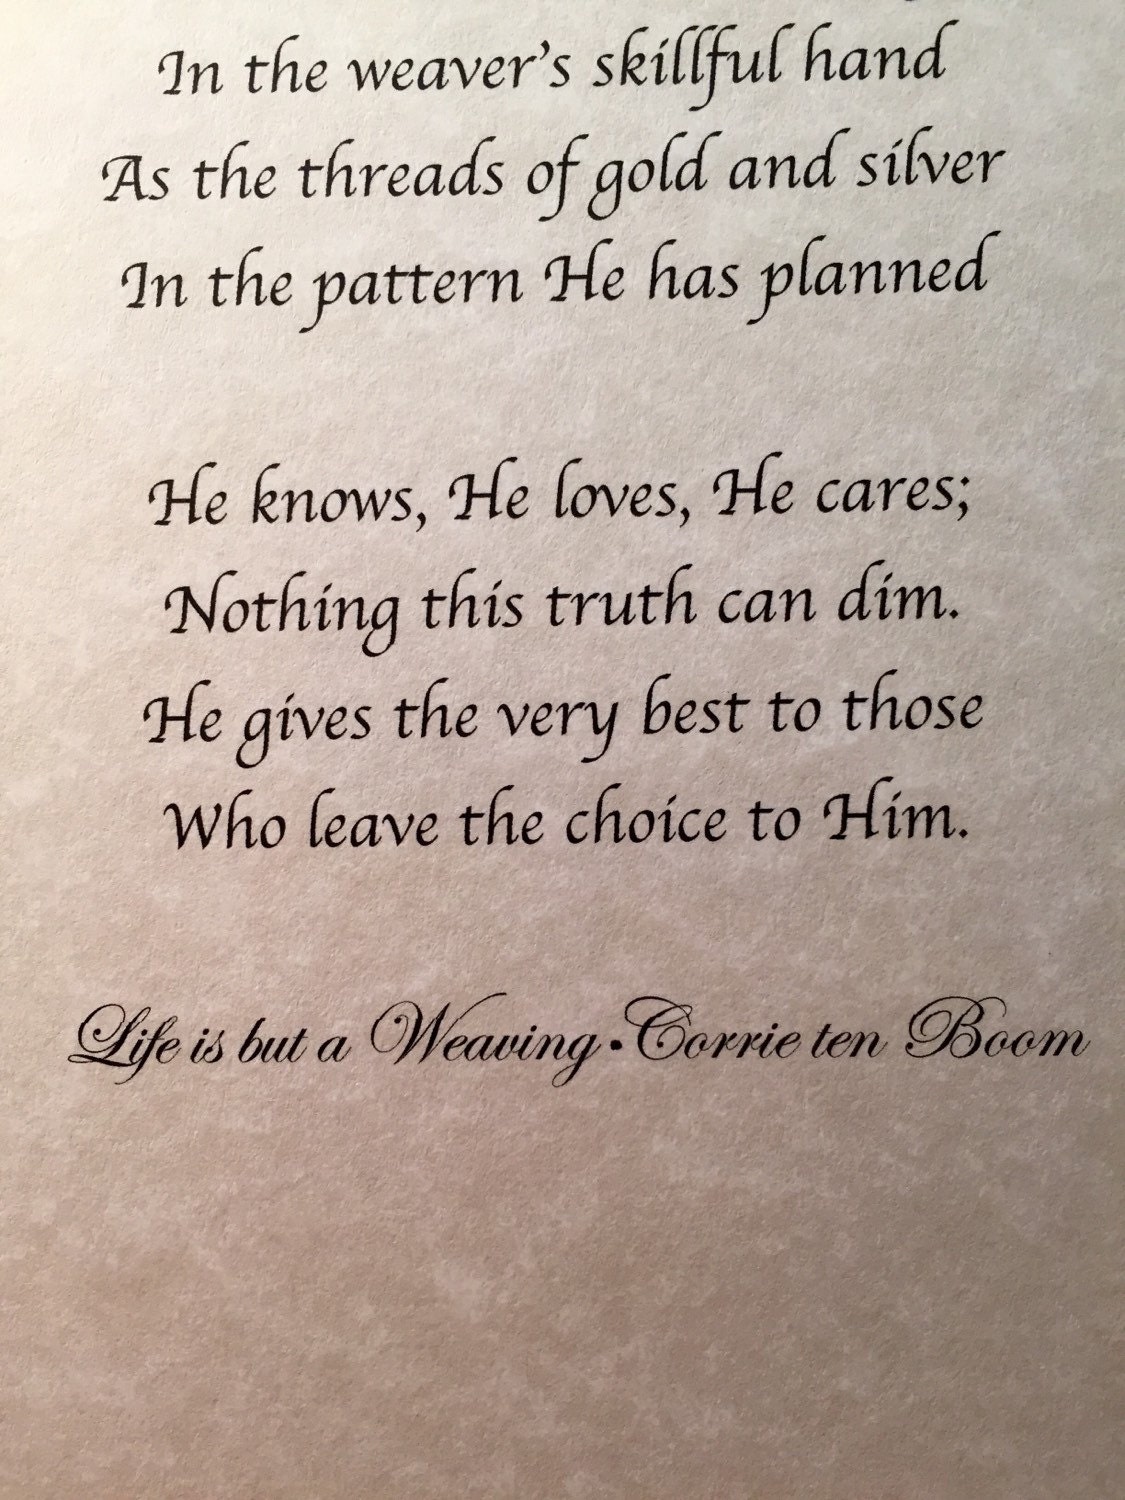 In the weaver's skillful hand
As the threads of gold and silver
In the pattern He has planned
He knows, He loves, He cares;
Nothing this truth can dim.
He gives the very best to those
Who leave the choice to Him.
Life is but a Weaving•Corrie ten Boom